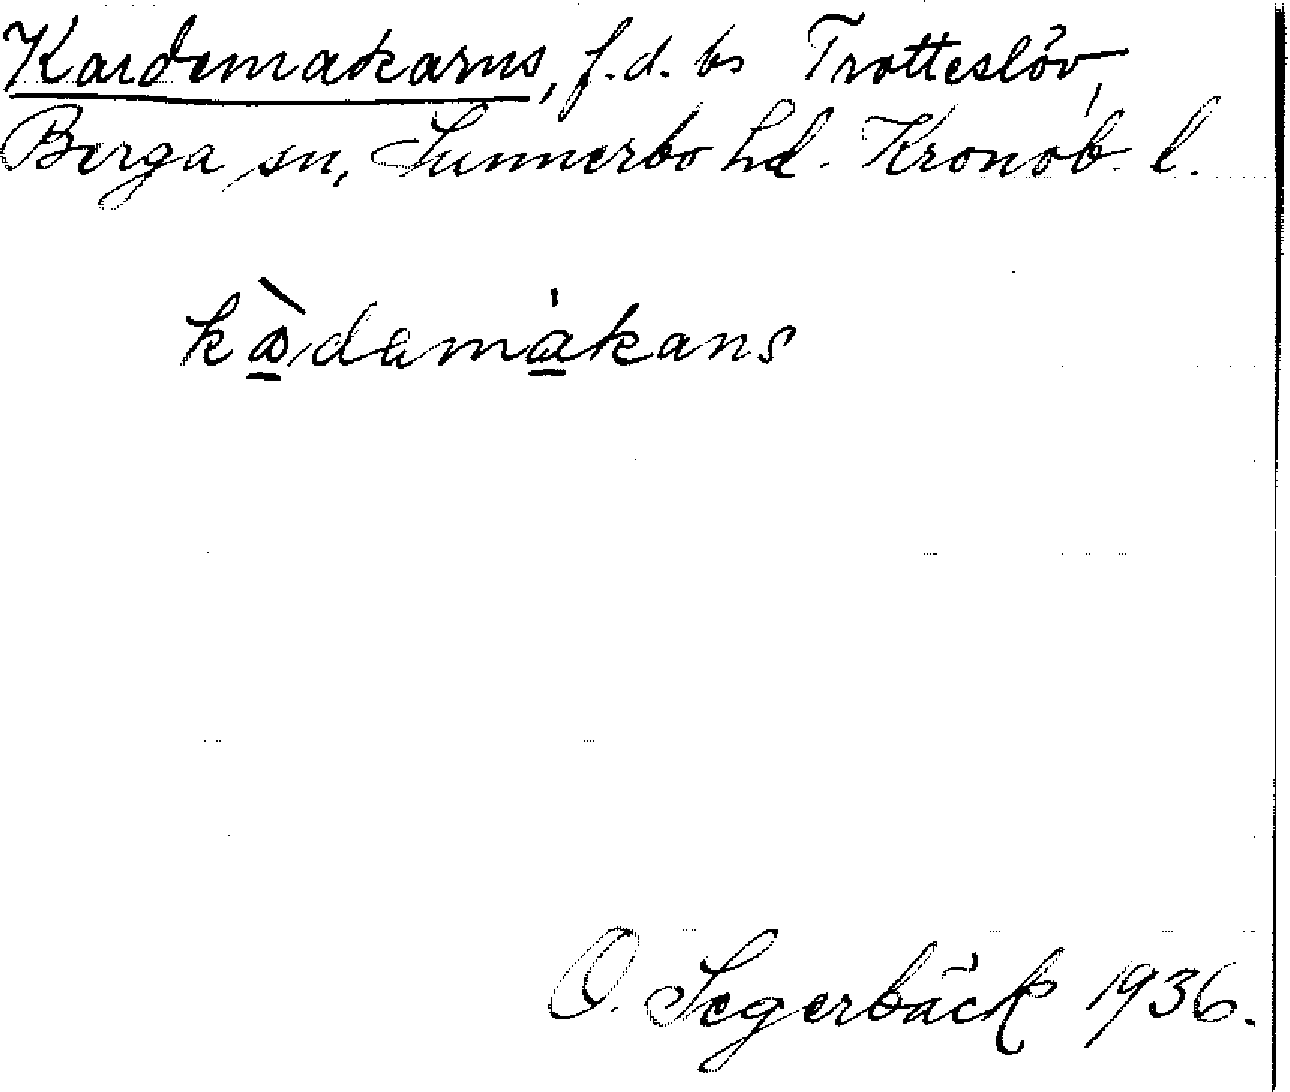 Kardemakarns, f.d. bs Trotteslöv,
Berga sn, Sunnerbo hd. Kronob. l.
kàdamákans
O. Segerbäck 1936.